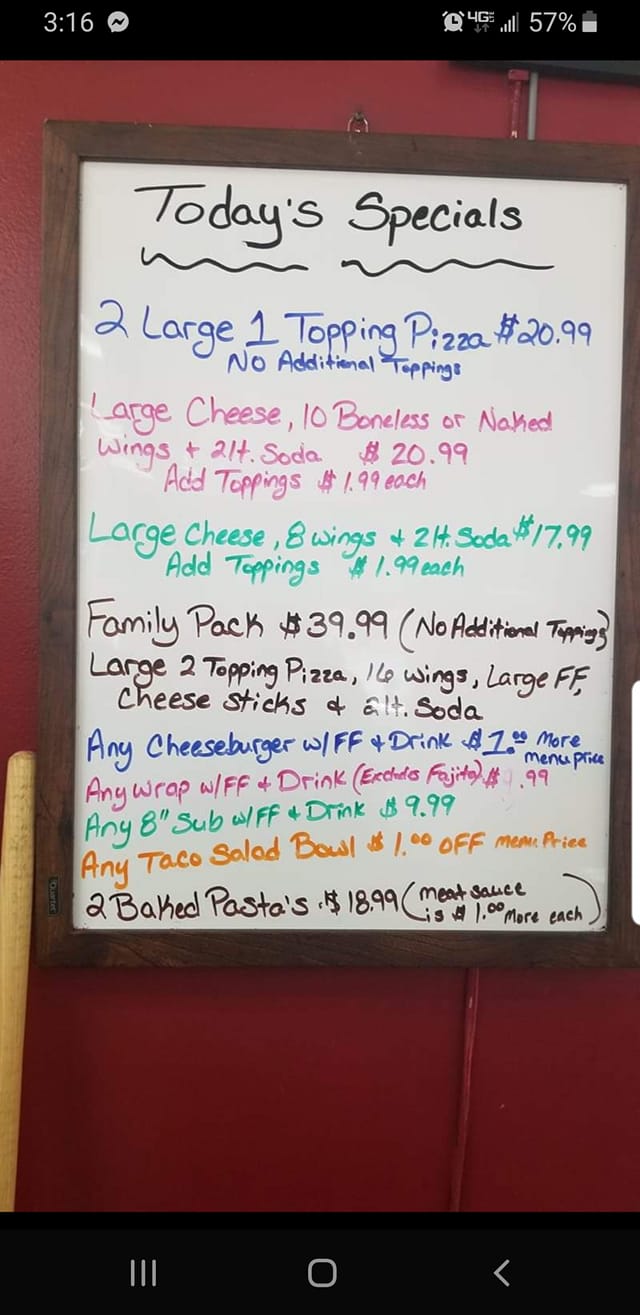 3:16
4G 57%
Today's Specials
2 Large 1 Topping Pizza $20.99
No Additional Toppings
Large Cheese, 10 Boneless or Naked
Wings + 2lt. Soda $ 20.99
Add Toppings $ 1.99 each
Large Cheese, 8 wings + 2lt. Soda $17.99
Add Toppings $ 1.99 each
Family Pack $39.99 (No Additional Toppings)
Large 2 Topping Pizza, 16 wings, Large FF,
Cheese Sticks & 2lt. Soda
Any Cheeseburger w/FF + Drink $ 1.00 More
menu price
Any wrap w/FF + Drink (Excludes Fajita) $ .99
Any 8" Sub w/FF + Drink $ 9.99
Any Taco Salad Bowl $ 1.00 OFF menu Price
2 Baked Pasta's $ 18.99 (meat sauce
is $ 1.00 More each)
Quartet